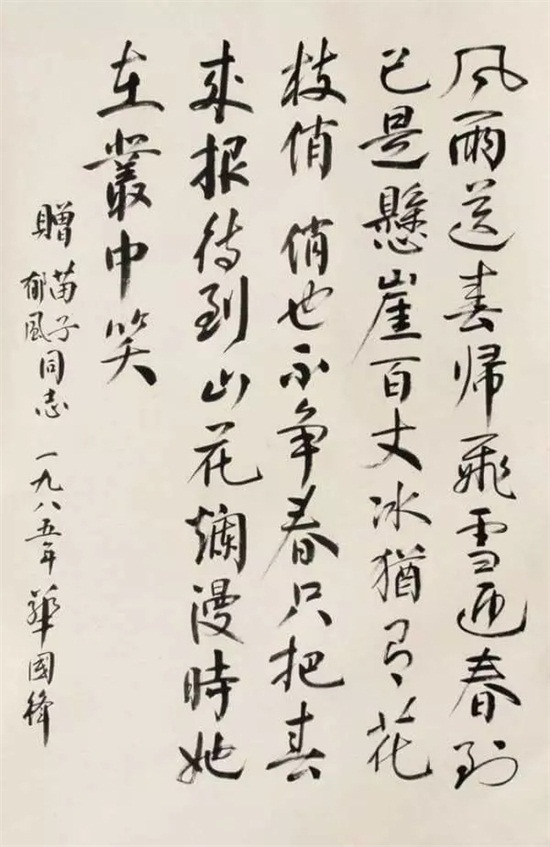 風雨送春帰飛雪迎春到
已是懸崖百丈冰猶有花
枝俏 俏也不争春只把春
来报待到山花爛漫時她
在叢中笑
贈苗子郁風同志 一九八五年 華國鋒